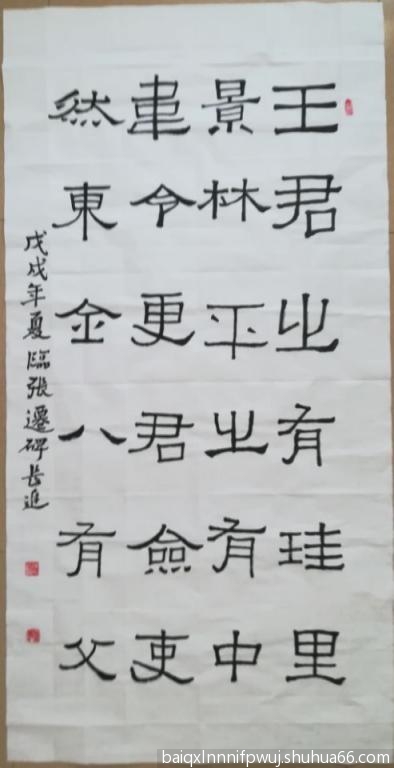 王君之有珪里
景林平之有中
令更君僉吏
然東金八有父
戊戌年夏臨張遷碑長進
baiqxlnnnifpwuj.shuhua66.com